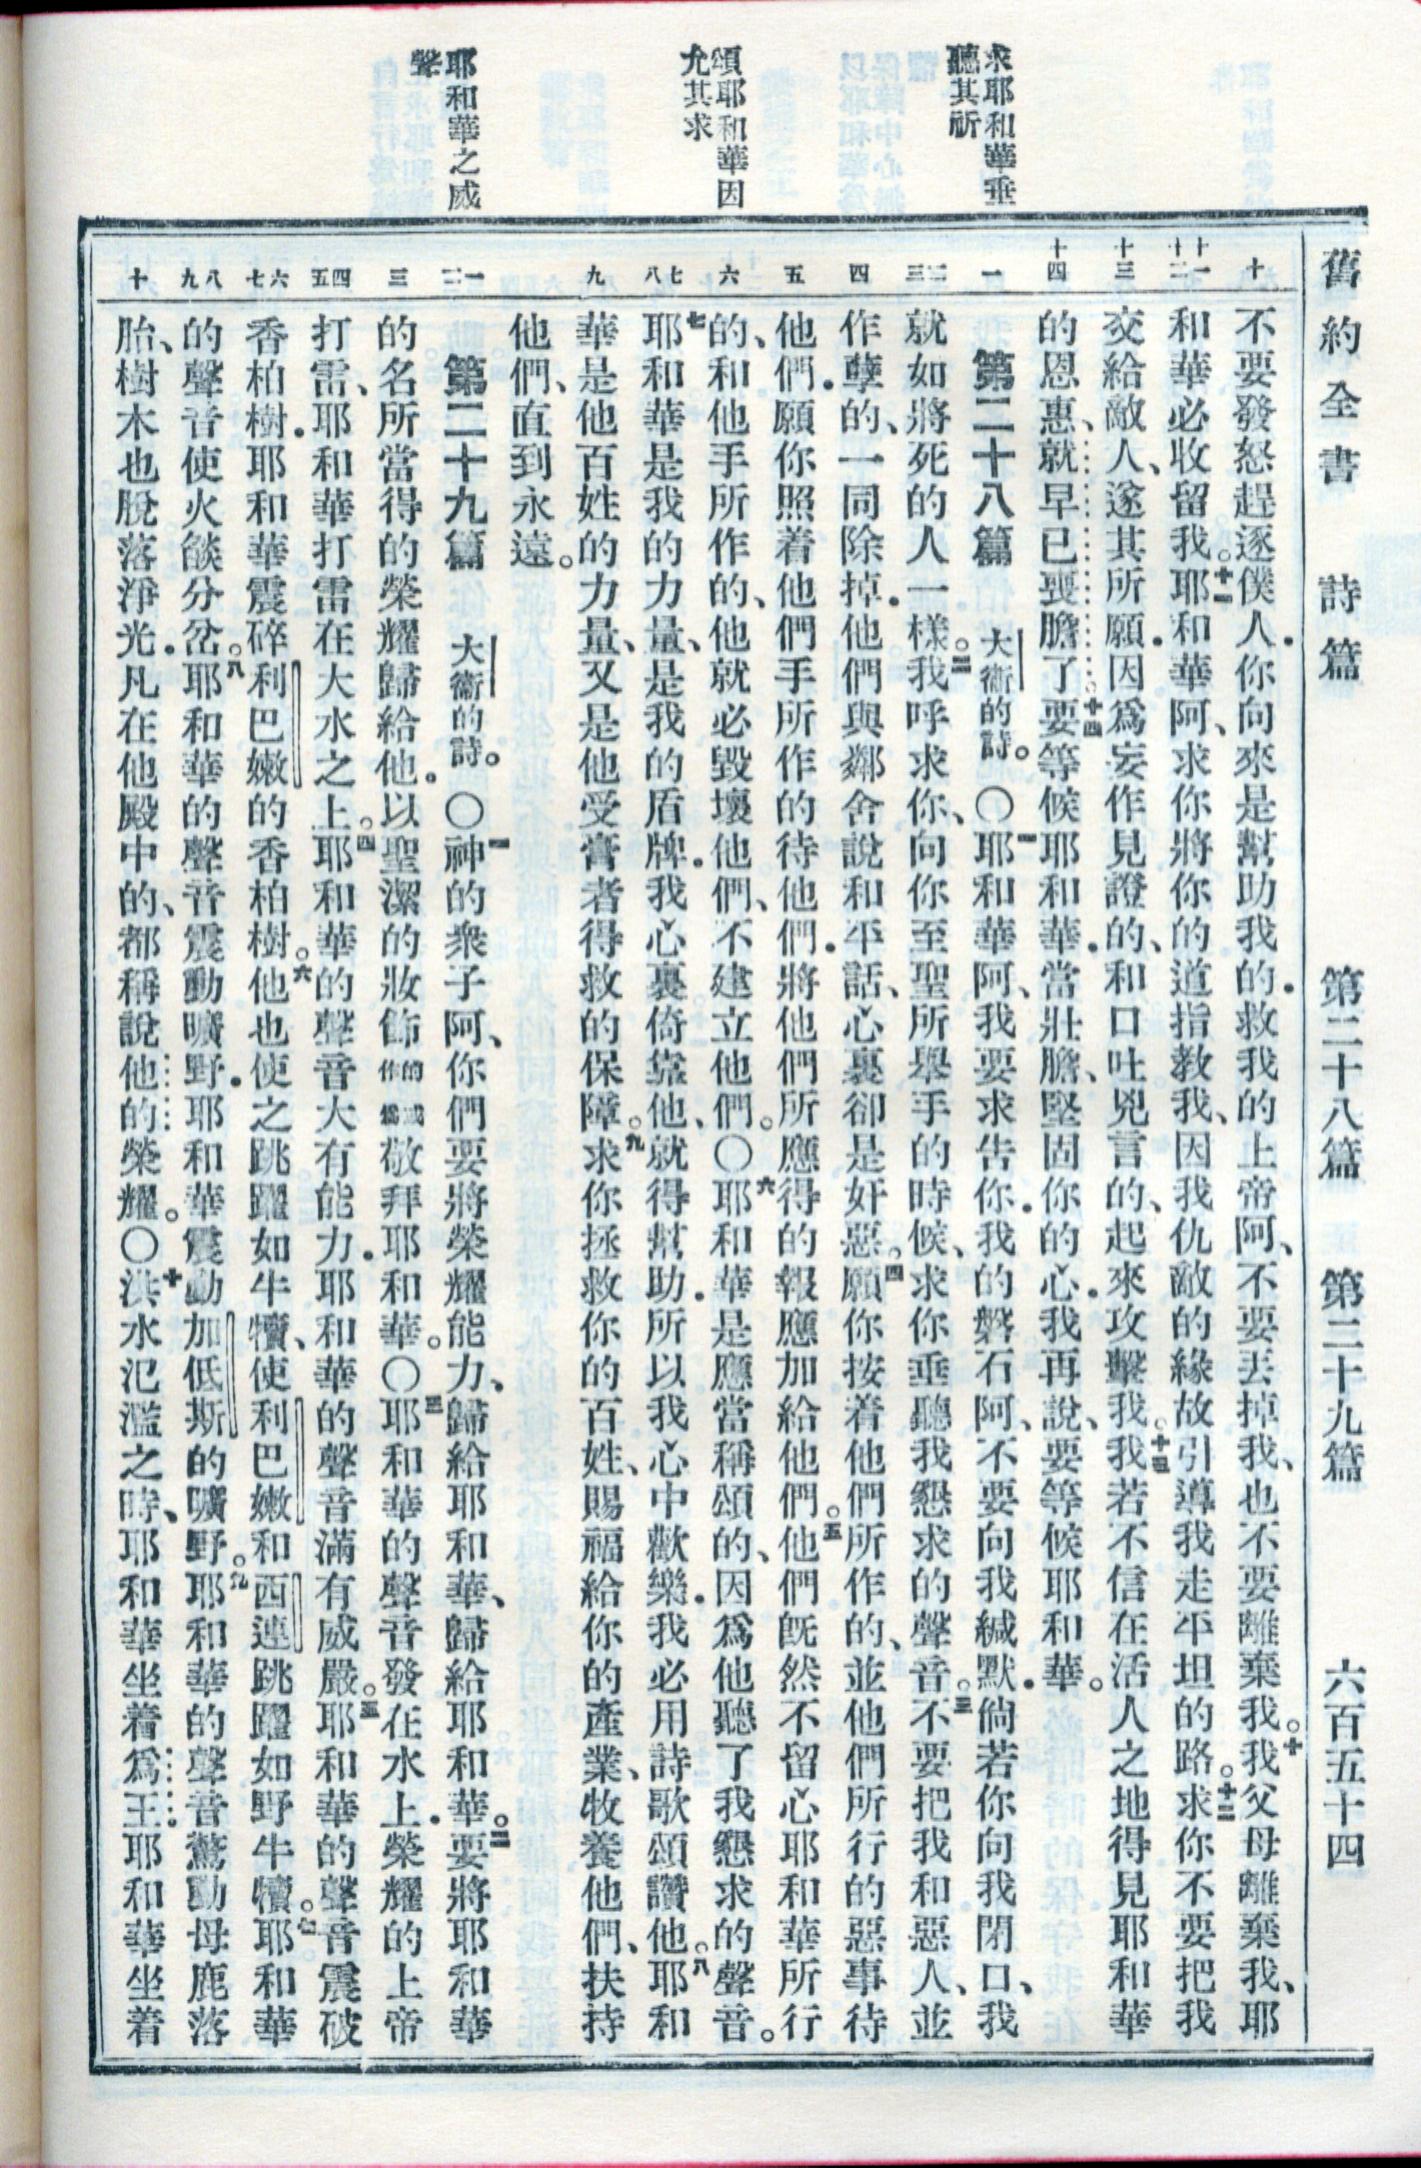 舊約全書 詩篇 第二十八篇 第二十九篇 六百五十四
求耶和華垂
聽其祈
頌耶和華因
允其求
耶和華之威
聲
十
十一 十二
十三
十四
一
二 三
四
五
六
七 八
九
一 二
三
四 五
六 七
八 九
十
不要發怒趕逐僕人.你向來是幫助我的.救我的上帝阿、不要丟掉我、也不要離棄我。十我父母離棄我、耶
和華必收留我。十一耶和華阿、求你將你的道指教我、因我仇敵的緣故引導我走平坦的路。十二求你不要把我
交給敵人、遂其所願.因爲妄作見證的、和口吐兇言的、起來攻擊我。十三我若不信在活人之地得見耶和華
的恩惠、就早已喪膽了。十四要等候耶和華.當壯膽、堅固你的心.我再說、要等候耶和華。
第二十八篇 大衞的詩。〇一耶和華阿、我要求告你.我的磐石阿、不要向我緘默.倘若你向我閉口、我
就如將死的人一樣。二我呼求你、向你至聖所舉手的時候、求你垂聽我懇求的聲音。三不要把我和惡人、並
作孽的、一同除掉.他們與鄰舍說和平話、心裏卻是奸惡。四願你按着他們所作的、並他們所行的惡事待
他們.願你照着他們手所作的待他們.將他們所應得的報應加給他們。五他們旣然不留心耶和華所行
的、和他手所作的、他就必毀壞他們、不建立他們。〇六耶和華是應當稱頌的、因爲他聽了我懇求的聲音。
七耶和華是我的力量、是我的盾牌.我心裏倚靠他、就得幫助.所以我心中歡樂.我必用詩歌頌讚他。八耶和
華是他百姓的力量、又是他受膏者得救的保障。九求你拯救你的百姓、賜福給你的產業、牧養他們、扶持
他們、直到永遠。
第二十九篇 大衞的詩。〇一神的衆子阿、你們要將榮耀能力、歸給耶和華、歸給耶和華。二要將耶和華
的名所當得的榮耀歸給他.以聖潔的妝飾的或作爲敬拜耶和華。〇三耶和華的聲音發在水上.榮耀的上帝
打雷、耶和華打雷在大水之上。四耶和華的聲音大有能力.耶和華的聲音滿有威嚴。五耶和華的聲音震破
香柏樹.耶和華震碎利巴嫩的香柏樹。六他也使之跳躍如牛犢、使利巴嫩和西連跳躍如野牛犢。七耶和華
的聲音使火燄分岔。八耶和華的聲音震動曠野.耶和華震動加低斯的曠野。九耶和華的聲音驚動母鹿落
胎、樹木也脫落淨光.凡在他殿中的、都稱說他的榮耀。〇十洪水氾濫之時、耶和華坐着爲王.耶和華坐着